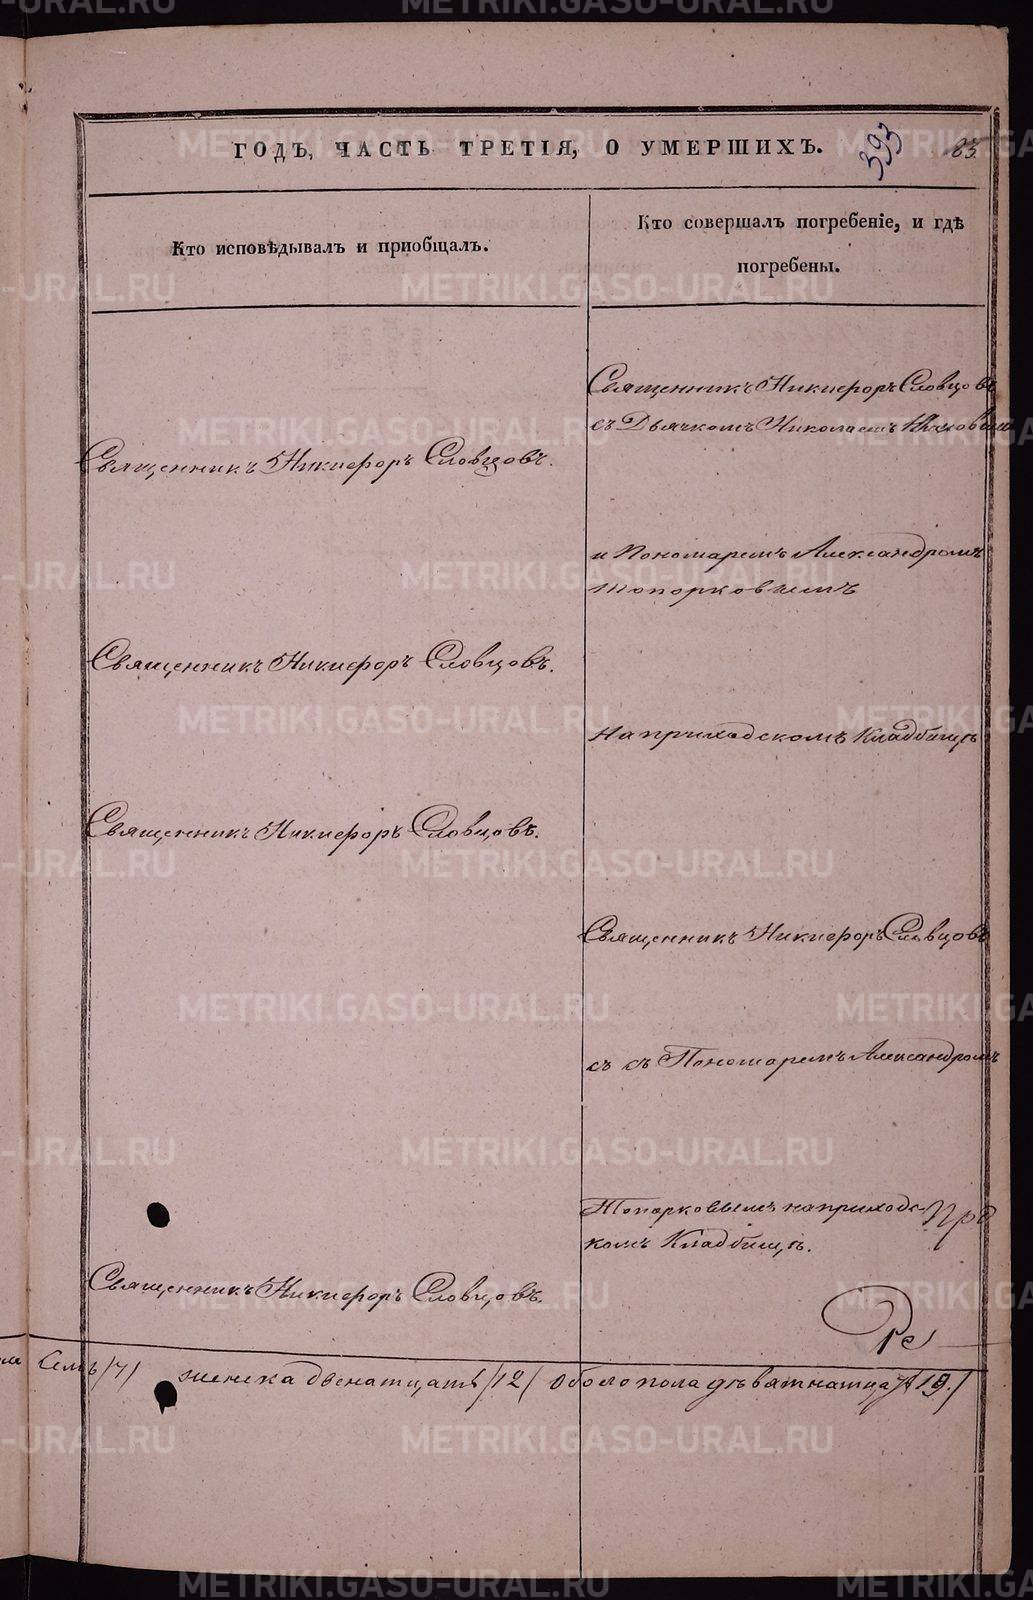 ГОДЪ, ЧАСТЬ ТРЕТІЯ, О УМЕРШИХЪ.
393
83.
Кто исповѣдывалъ и приобщалъ.
Кто совершалъ погребеніе, и гдѣ
погребены.
Священникъ Никифоръ Словцовъ
съ Дьячкомъ Николаемъ
Священникъ Никифоръ Словцовъ.
и Пономаремъ Александромъ
Топорковымъ
Священникъ Никифоръ Словцовъ.
на приходскомъ Кладбищѣ
Священникъ Никифоръ Словцовъ.
Священникъ Никифоръ Словцовъ
съ съ Пономаремъ Александромъ
Топорковымъ на приходс-
комъ Кладбищѣ.
Священникъ Никифоръ Словцовъ.
Семь /7/ женска двенатцать /12/ обоего пола девятнатцать /19./
METRIKI.GASO-URAL.RU